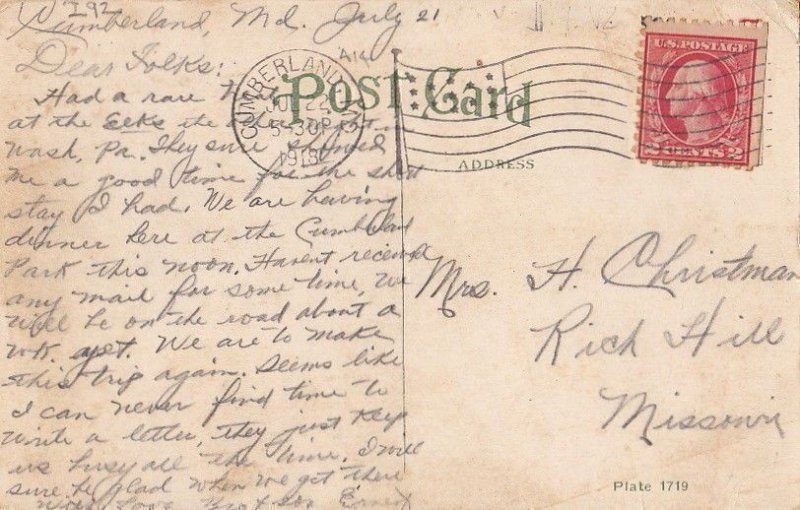 Cumberland, Md. July 21
Dear Folks:
Had a rare
at the Elks the other night.
Wash, Pa. They sure showed
me a good time for the short
stay I had. We are having
dinner here at the Cumberland
Park this noon. Havent received
any mail for some time, We
will be on the road about a
wk. yet. We are to make
this trip again. Seems like
I can never find time to
write a letter, they just keep
us busy all the time. I will
sure be glad when we get there
Love Ernest
CUMBERLAND
5-30P
1918
Post Card
ADDRESS
U.S. POSTAGE
2 CENTS 2
Mrs. H. Christman
Rich Hill
Missouri
Plate 1719